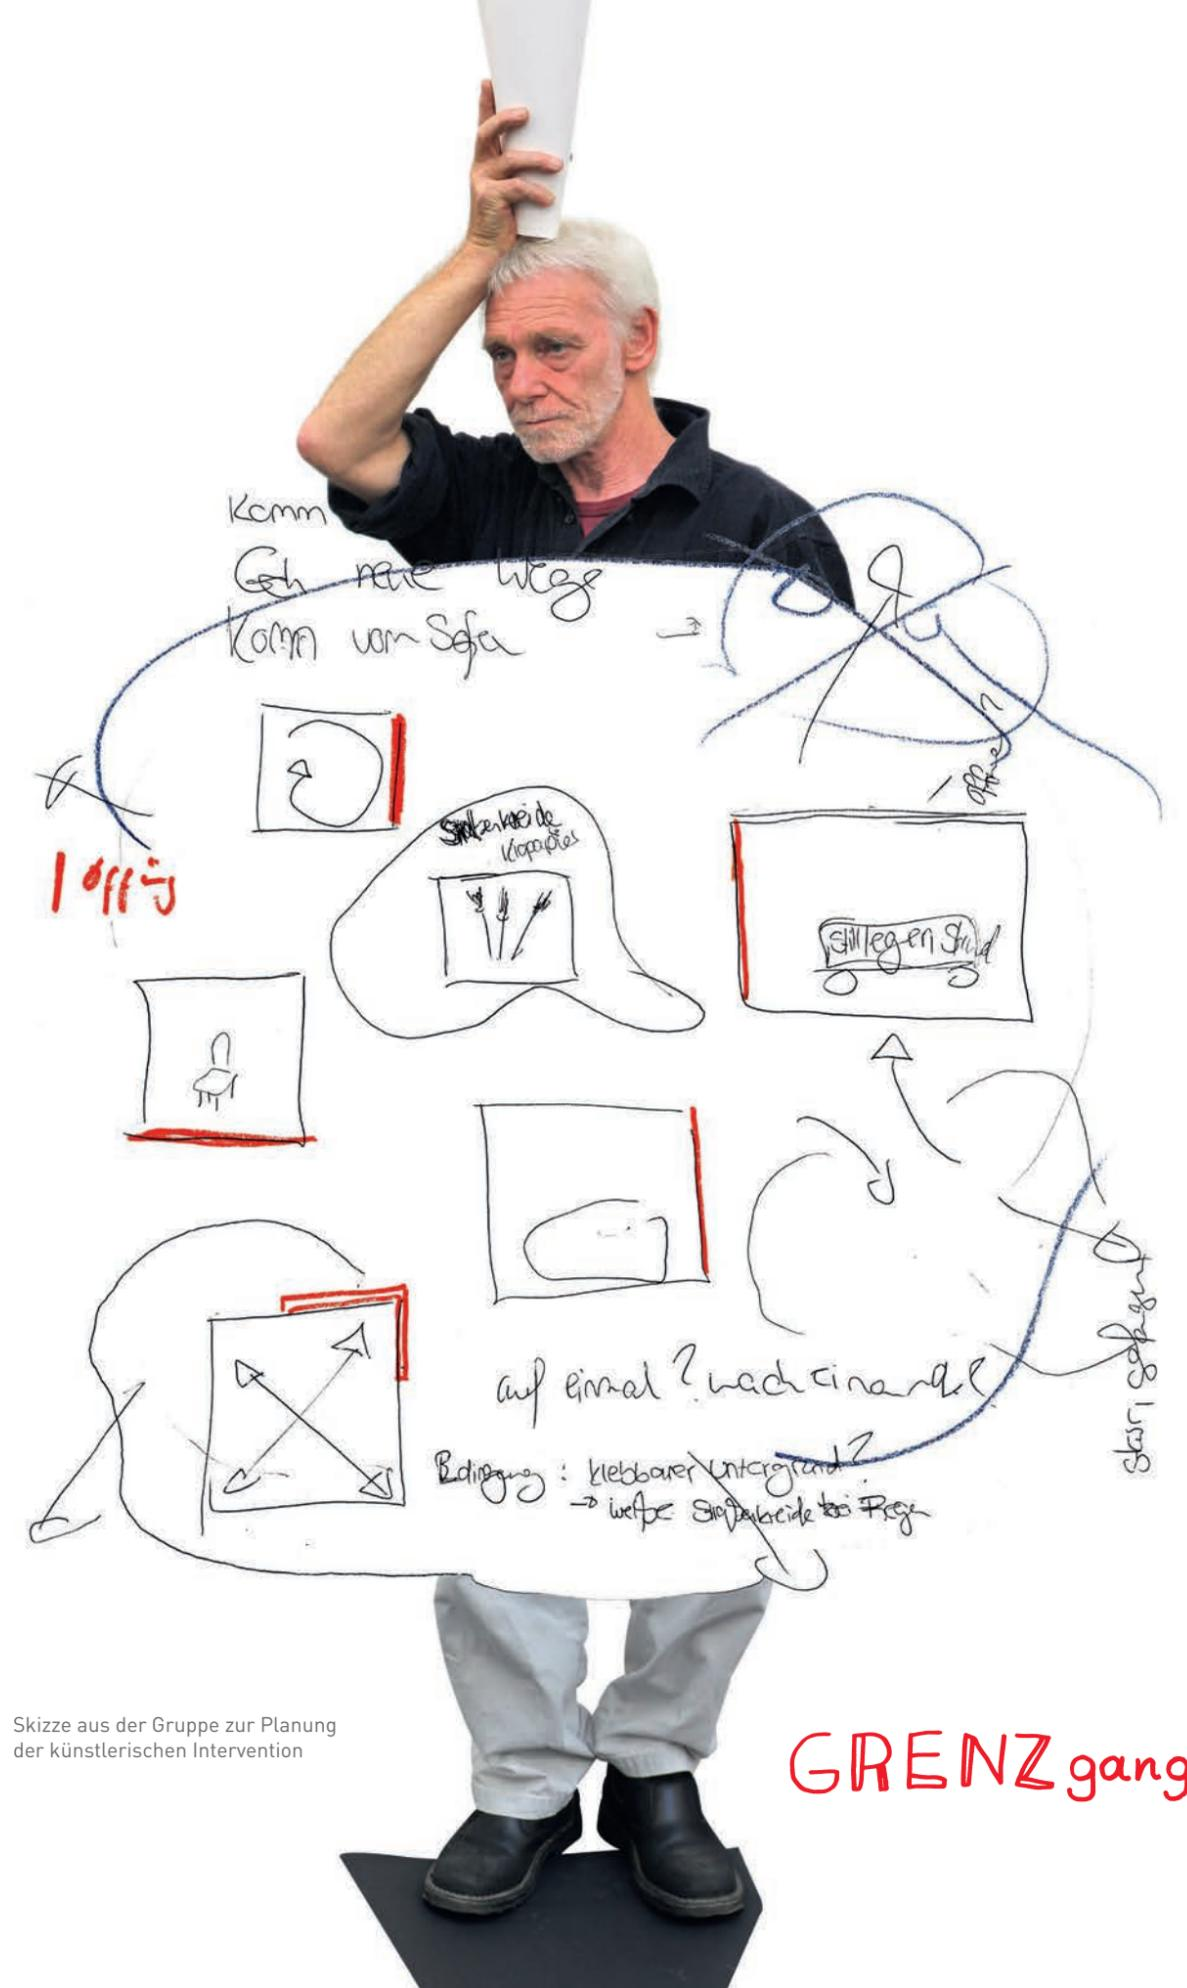 Komm
Geh neue Wege
Komm vom Sofa
offen?
Straßenkreide
| öffng
Stilllegen
auf einmal? nacheinander?
Bedingung: klebbarer Untergrund?
→ weiße Straßenkreide bei Regen
Skizze aus der Gruppe zur Planung
der künstlerischen Intervention
GRENZgang